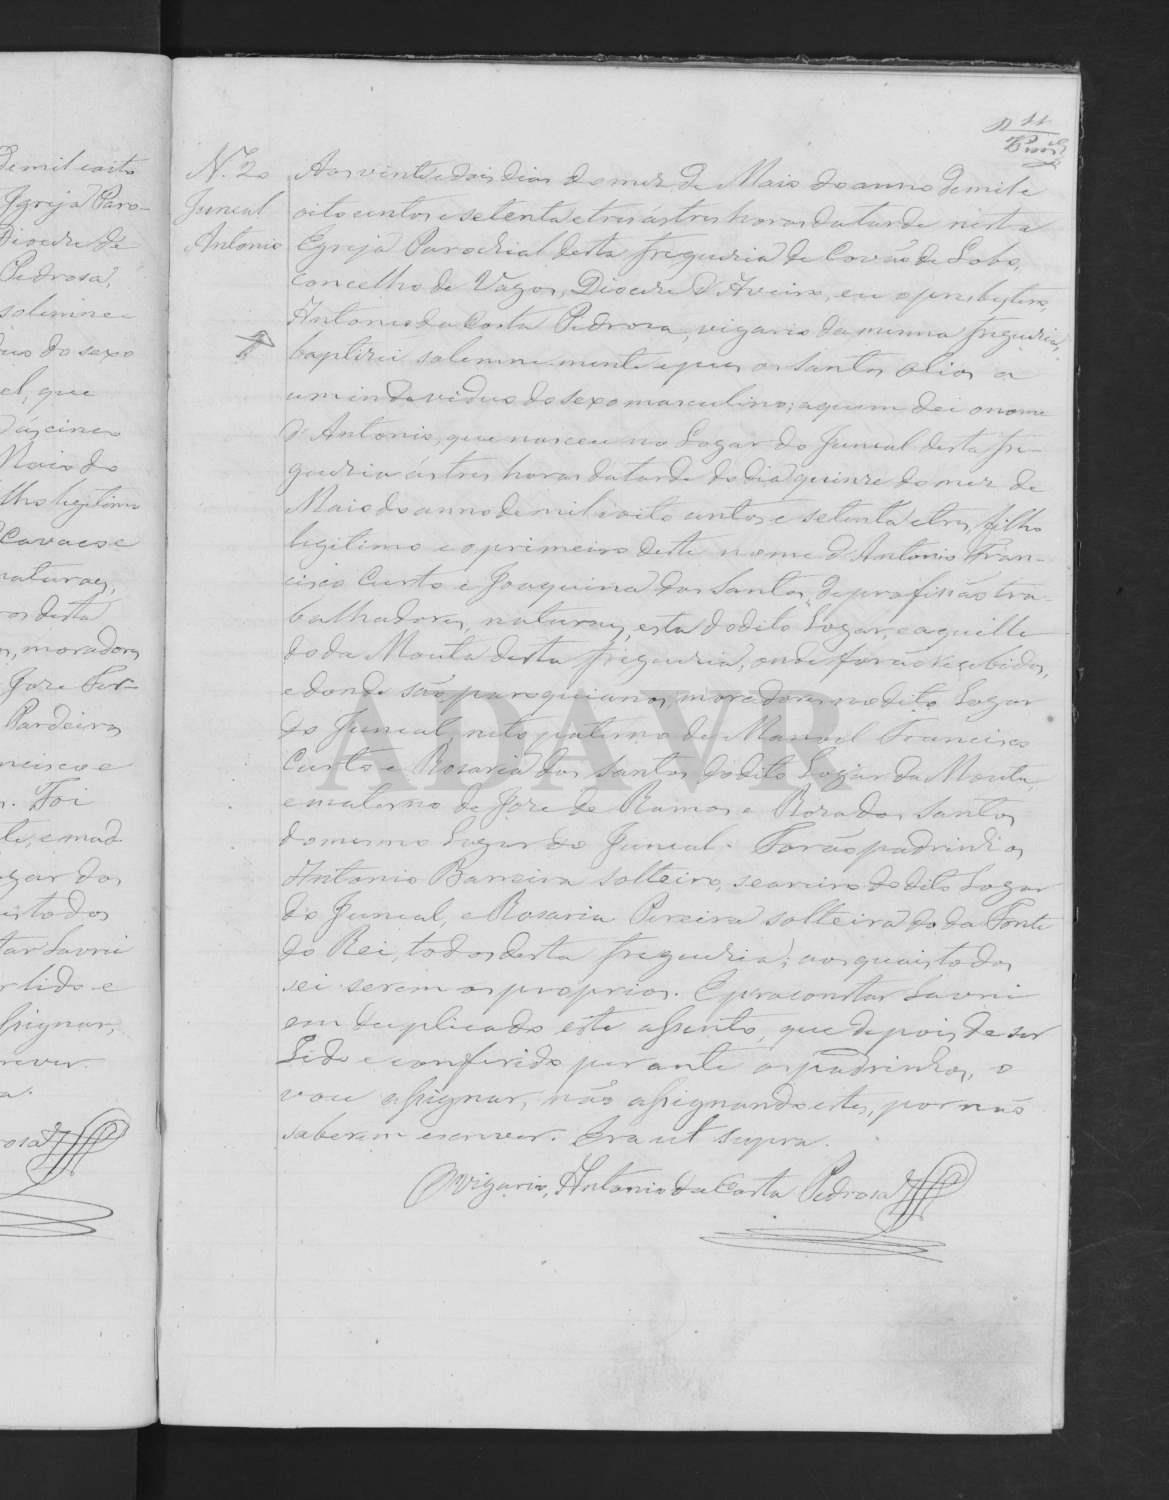 demil eoito
Igreja Paro-
Diocese de
Pedrosa,
solemne
duo do sexo
el, que
das cinco
Maio do
lho legitimo
Cavaco e
naturaes,
os desta
moradores
Jose
Pardeiros
ncisco e
Foi
te, e mad
gar dos
stodos
tar Lavrei
r lido e
assignar,
rever.
a.
rosa
11
N. 20
Junçal
Antonio
Aos vinte e dois dias do mez de Maio do anno de mil e
oito centos e setenta e tres ás tres horas da tarde nesta
Egreja Parochial desta freguezia de Covão do Lobo,
Concelho de Vagos, Diocese d'Aveiro, eu o presbytero,
Antonio da Costa Pedrosa, vigario da mesma freguezia,
baptizei solemne mente e puz os Santos Olios a
um individuo do sexo masculino; a quem dei o nome
d'Antonio, que nasceu no Logar do Junçal desta fre-
guezia ás tres horas da tarde do dia quinze do mez de
Maio do anno de mil e oito centos e setenta e tres, filho
legitimo e o primeiro deste nome d'Antonio Fran-
cisco Curto e Joaquina dos Santos, de profissão tra-
balhadores, naturaes, esta do dito Logar, e aquelle
do da Mouta desta freguezia, onde forão recebidos,
e donde são paroquianos, moradores no dito Logar
do Junçal, neto paterno de Manoel Francisco
Curto e Rosaria dos Santos do dito Logar da Mouta,
e materno de Jose de Ramos e Rosa dos Santos
do mesmo Logar do Junçal. Forão padrinhos
Antonio Barreira solteiro, seareiro do dito Logar
do Junçal, e Rosaria Pereira solteira do da Fonte
do Rei, todos desta freguezia; aos quaes todos
sei serem os proprios. E para constar Lavrei
em duplicado este assento, que depois de ser
Lido e conferido perante os padrinhos, o
vou assignar, não assignando estes, por não
saberem escrever. Era ut supra.
O vigario, Antonio da Costa Pedrosa
ADAVR